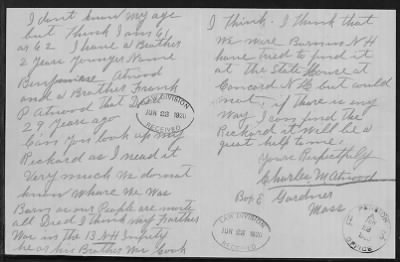 I don't know my age
but Think I am 61
or 62 I have a Brother
2 years younger Name
Atwood
and a Brother Frank
P Atwood that Died
29 years ago
Can you look up my
Reckard as I need it
Very much We do not
know where We Was
Born as our People are
all Dead I think my Farther
War in the 13 N H
he or his Brother We
LAW DIVISION
JUN 23 1920
RECEIVED
I think. I think that
We were Born in N H
have tried to find it
at the State House at
Concord N H but would
not, if there is any
Way I can find the
Reckard it Will be a
great help to me.
Yours Respectfully
Charles M Atwood
Box E Gardner
Mass
LAW DIVISION
JUN 23 1920
RECEIVED
PENSION
OFFICE